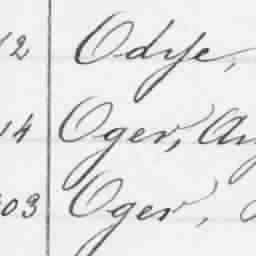 12 Odye,
14 Oger, Au
03 Oger,